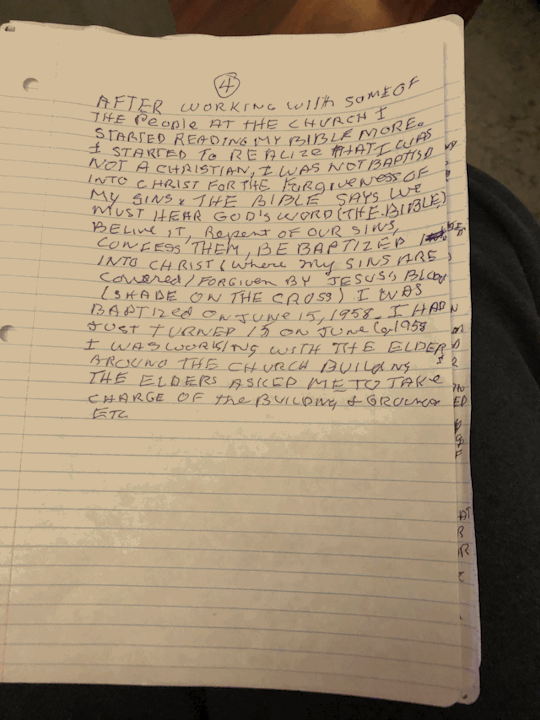 4
AFTER WORKING WITH SOME OF
THE PeoPle AT THE CHURCH I
STARTED READING MY BIBLE MORE.
I STARTED TO REALIZE THAT I WAS
NOT A CHRISTIAN, I WAS NOT BAPTISD
INTO CHRIST FOR THE FORGIVENESS OF
MY SINS. THE BIBLE SAYS WE
MUST HEAR GOD'S WORD (THE BIBLE)
BELIVE IT, RepeNT OF OUR SINS,
CONFESS THEM, BE BAPTIZED
INTO CHRIST (where my SINS ARE
COVERED/FORGIVEN BY JESUS'S BLOOD
(SHADE ON THE CROSS) I WAS
BAPTIZED ON JUNE 15, 1958. I HAD
JUST TURNED ON JUNE 1958
I WAS WORKING WITH THE ELDERS
AROUND THE CHURCH BUILDING
THE ELDERS ASKED ME TO TAKE
CHARGE OF the BUILDING & GROUNDS
ETC